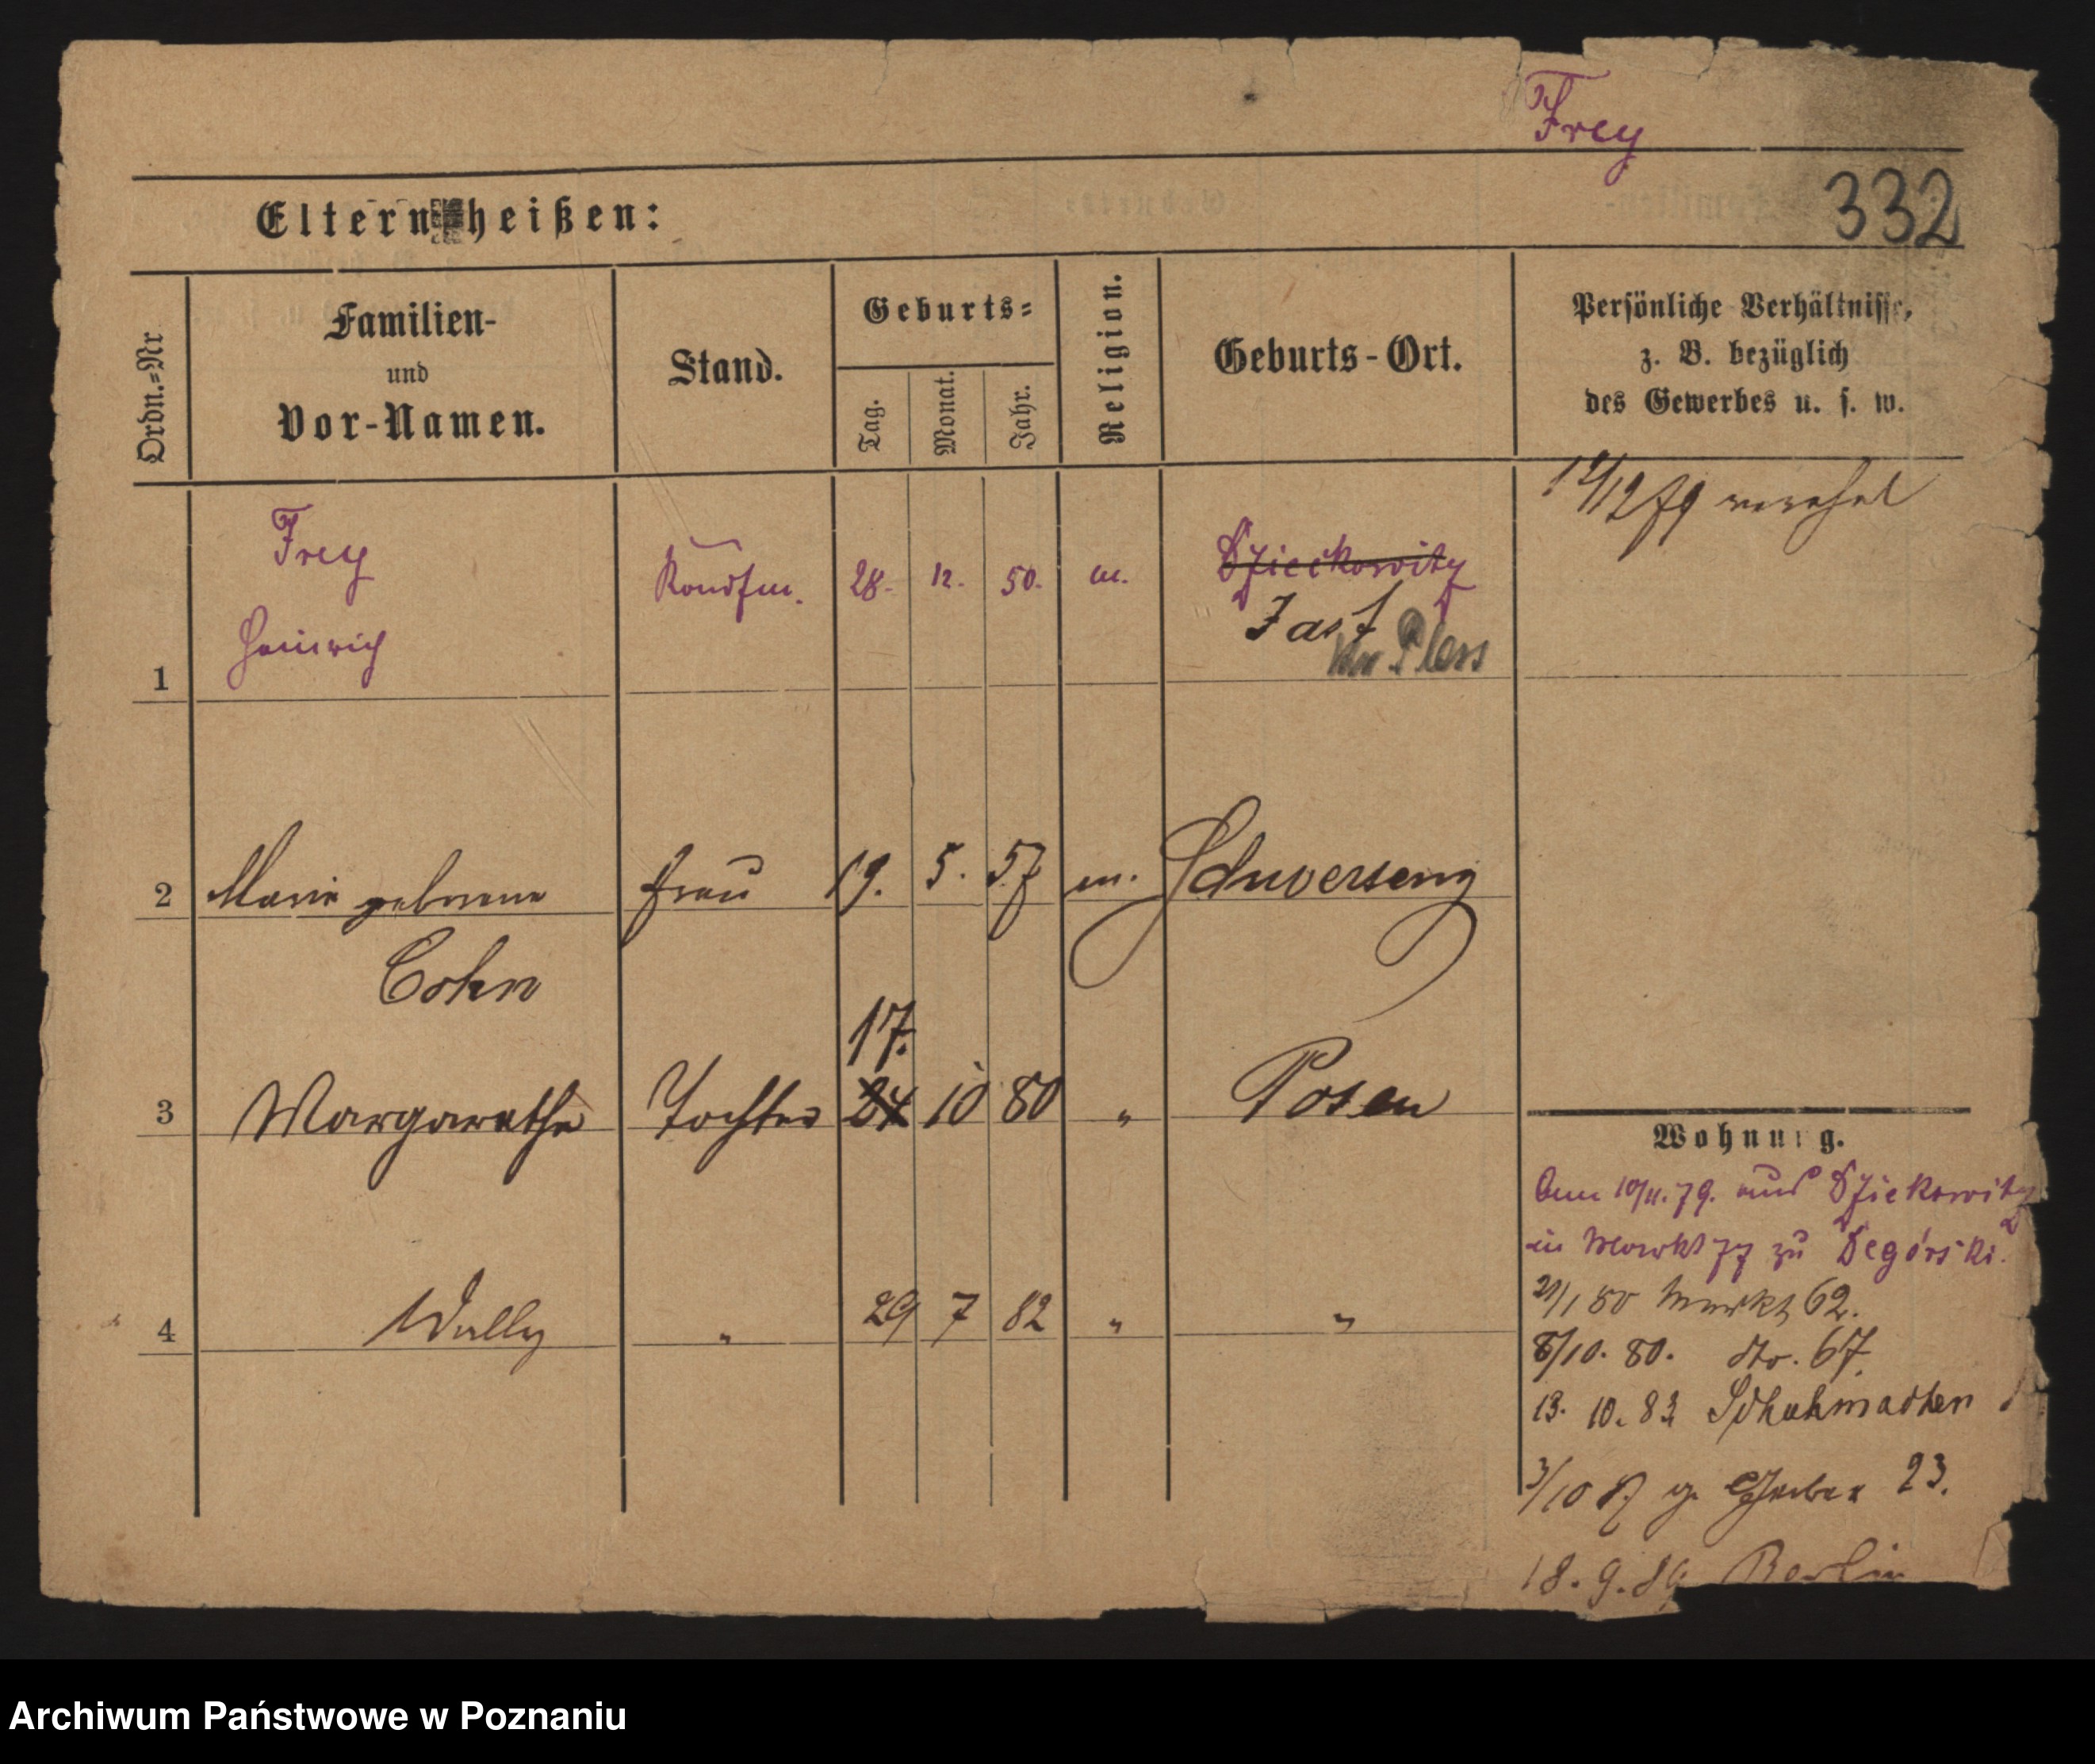 Frey
332
Eltern heißen:
Ordn.=Nr
Familien-
und
Vor-Namen.
Stand.
Geburts=
Tag.
Monat.
Jahr.
Religion.
Geburts-Ort.
Persönliche Verhältnisse,
z. B. bezüglich
des Gewerbes u. s. w.
1
Frey
Heinrich
Kaufm.
28.
12.
50.
m.
Dzieckowitz
Jast
Kr Pless
79 vereh
2
Marie geborene
Cohn
Frau
19.
5.
57
m.
Schwersenz
3
Margarethe
Tochter
17.
24
10
80
"
Posen
4
Wally
"
29
7
82
"
"
Wohnung.
Am 10/11.79. aus Dziekowitz
in Markt 77 zu Degórski.
21/1 80 Markt 62.
8/10. 80. dto. 67.
13. 10. 83 Schuhmacher
3/10 87 Gerber 23.
18. 9. 89 Berlin
Archiwum Państwowe w Poznaniu